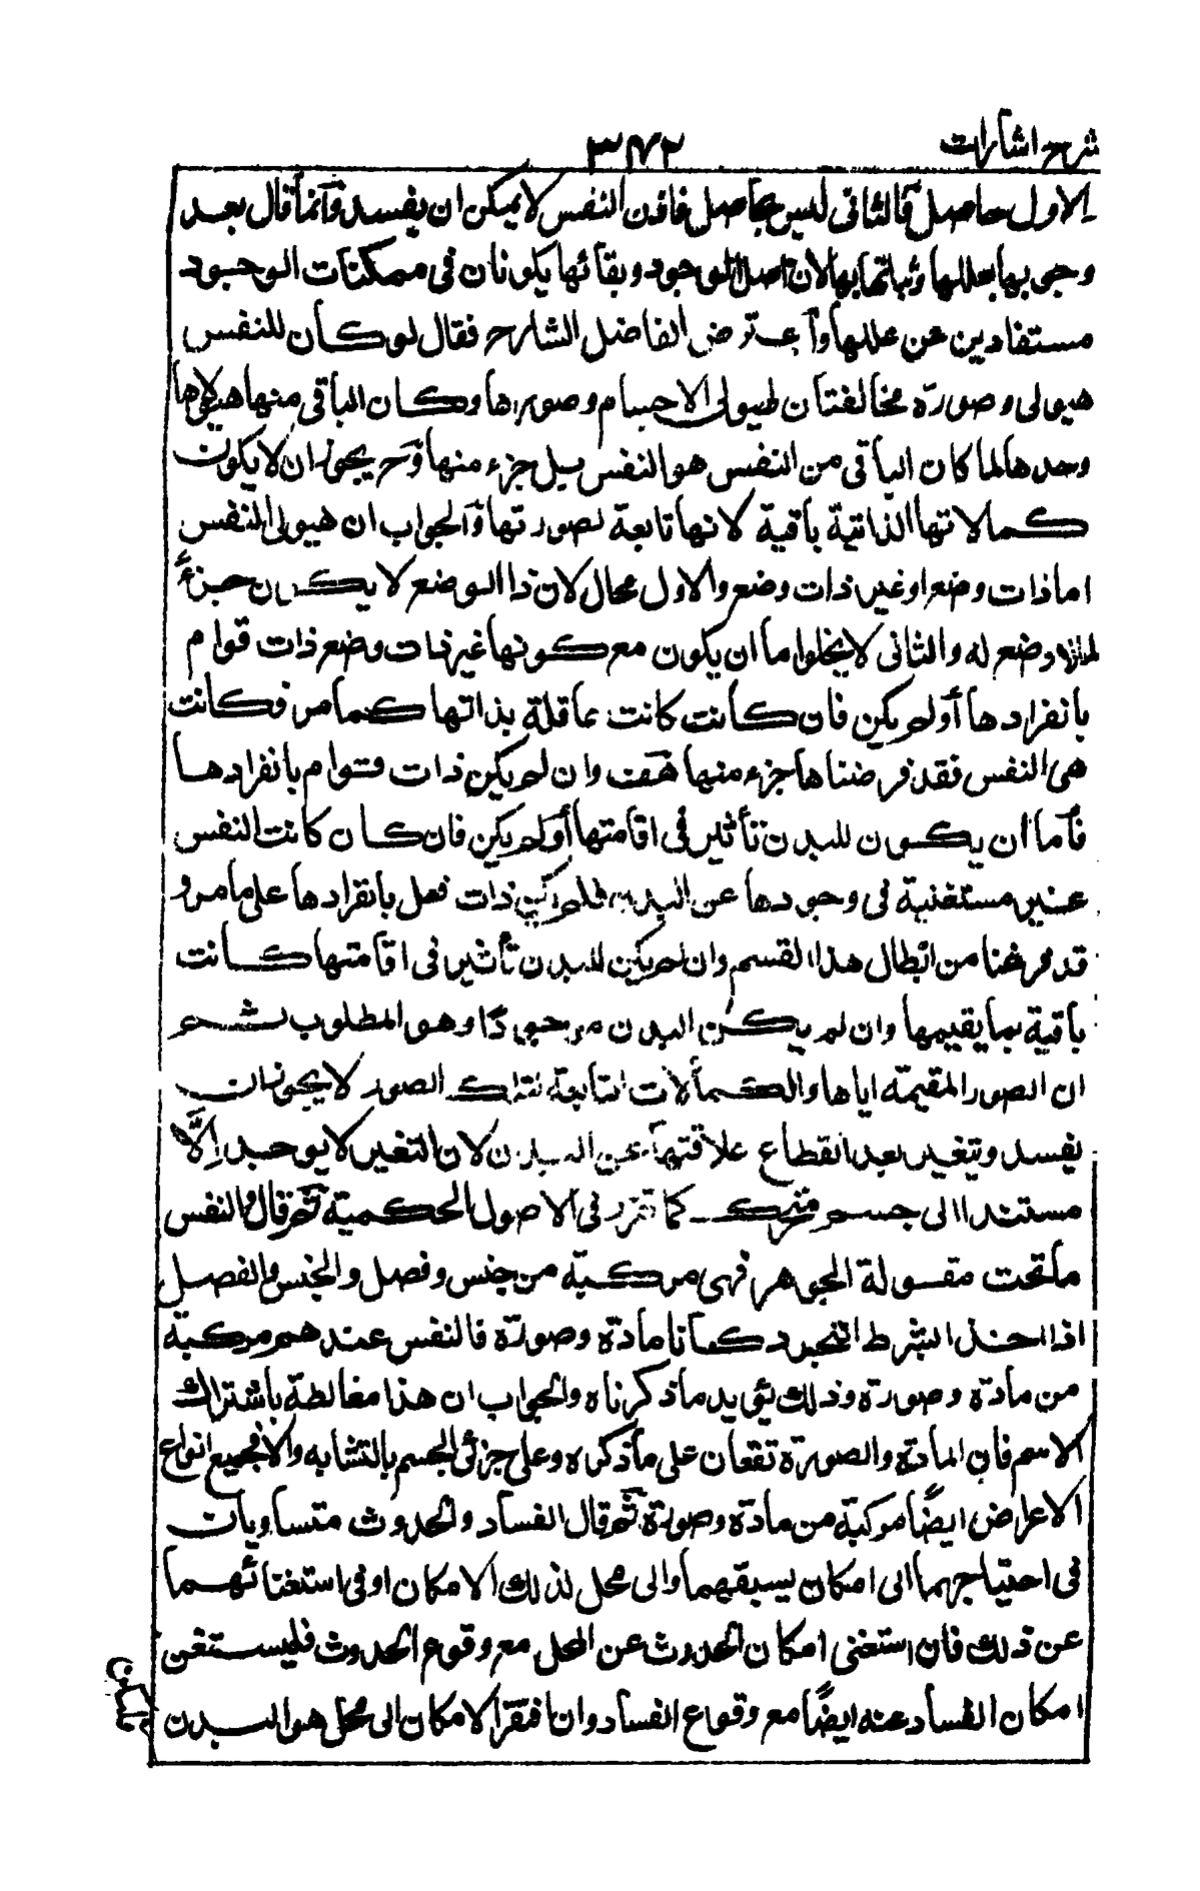 شرح اشارات
٣٧٢
الاول حاصل والثانى ليس بحاصل فاذن النفس لا يمكن ان يفسد وانما قال بعد
وجوبها بعللها وثباتها بها لان اصل الوجود وبقائها يكونان فى ممكنات الوجود
مستفادين عن عللها واعترض الفاضل الشارح فقال لو كان للنفس
هيولى وصورة مخالفتان لهيولى الاجسام وصورها وكان الباقى منها هيولاها
وحدها لما كان الباقى من النفس هو النفس بل جزء منها وح يجوز ان لا يكون
كمالاتها الذاتية باقية لانها تابعة لصورتها والجواب ان هيولى النفس
اما ذات وضع او غير ذات وضع والاول محال لان ذا الوضع لا يكون جزءً
لما لا وضع له والثانى لا يخلوا ما ان يكون مع كونها غير ذات وضع ذات قوام
بانفرادها او لم يكن فان كانت كانت عاقلة بذاتها كما مر فكانت
هى النفس فقد فرضناها جزء منها هف وان لم يكن ذات قوام بانفرادها
فاما ان يكون للبدن تأثير فى اقامتها او لم يكن فان كان كانت النفس
غير مستغنية فى وجودها عن البدن فلم يكن ذات فعل بانفرادها على ما مر و
قد فرغنا من ابطال هذا القسم وان لم يكن للبدن تأثير فى اقامتها كانت
باقية بما يقيمها وان لم يكن البدن موجودًا وهو المطلوب ثم
ان الصور المقيمة اياها والكمالات التابعة لتلك الصور لا يجوز ان
يفسد ويتغير بعد انقطاع علاقتها عن البدن لان التغير لا يوجد اِلَّا
مستندا الى جسم متحرك كما تقرر فى الاصول الحكمية ثم قال والنفس
ما تحت مقولة الجوهر فهى مركبة من جنس وفصل والجنس والفصل
اذا اخذ البشرط التجرد كانا مادة وصورة فالنفس عندهم مركبة
من مادة وصورة وذلك يؤيد ما ذكرناه والجواب ان هذا مغالطة باشتراك
الاسم فان المادة والصورة تقعان على ما ذكره وعلى جزئى الجسم بالتشابه والا فجميع انواع
الاعراض ايضًا مركبة من مادة وصورة ثم قال الفساد والحدوث متساويان
فى احتياجهما الى امكان يسبقهما والى محل لذلك الامكان او فى استغنائهما
عن ذلك فان استغنى امكان الحدوث عن المحل مع وقوع الحدوث فليستغن
امكان الفساد عنه ايضًا مع وقوع الفساد وان افتقر الامكان الى محل هو البدن